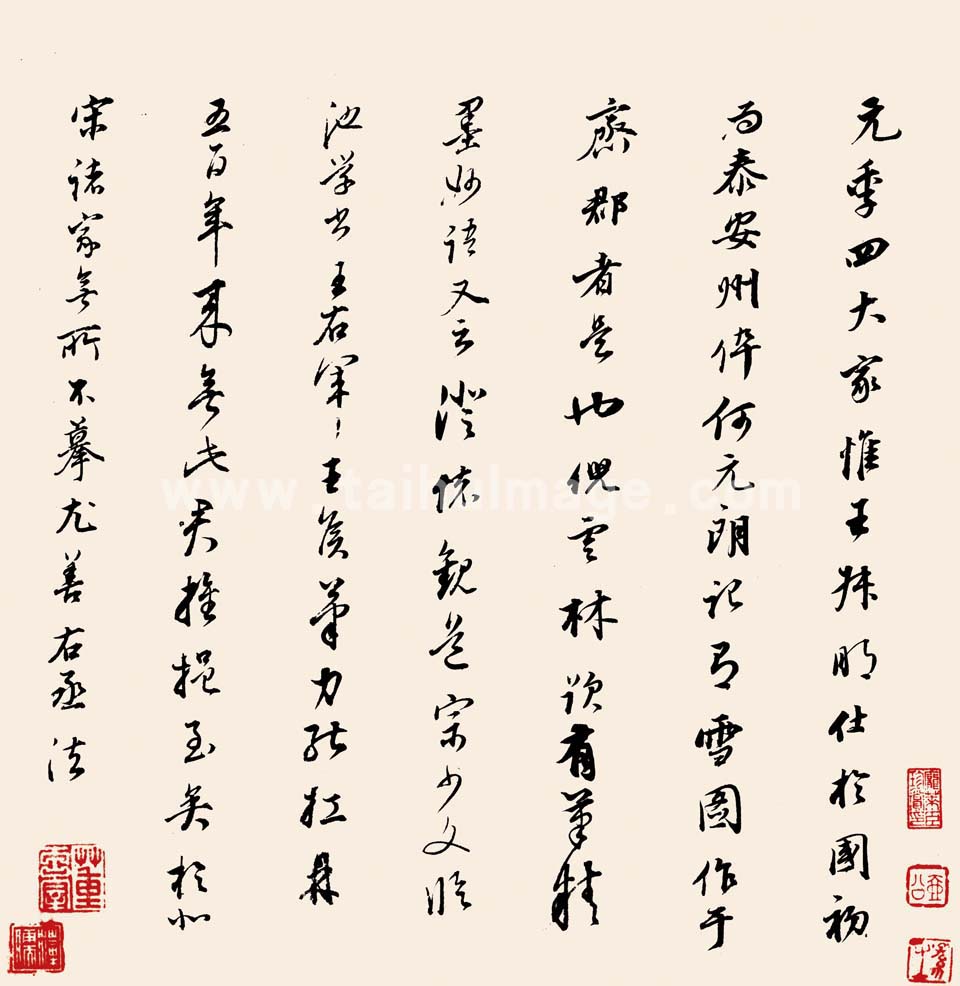 元季四大家惟王叔明仕於國初
為泰安州倅何元朗記有雪圖作于
齋郡者是也倪雲林跋有筆精
墨妙語又云澄懷觀道宗少文臨
池學書王右軍王侯筆力能扛鼎
五百年來無此君推挹至矣於北
宋諸家無所不摹尤善右丞法
www.taihuimage.com